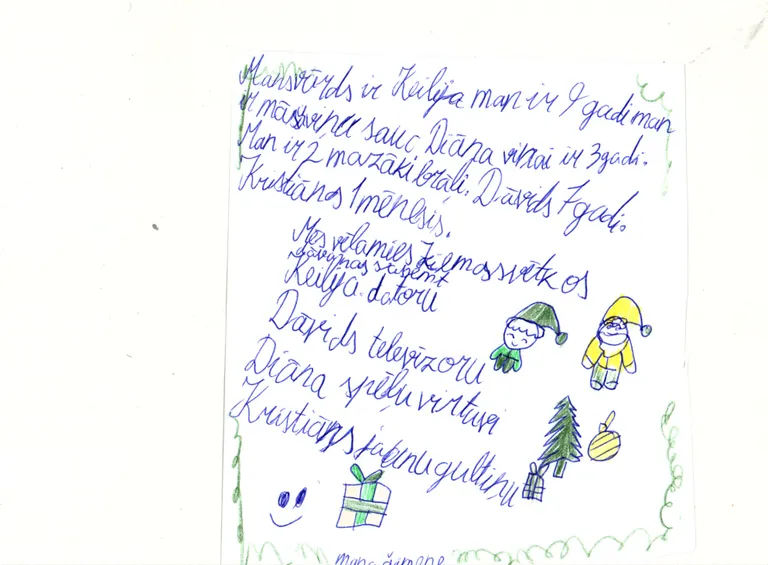 Mansvārds ir Keilija man ir 9 gadi man
ir māsa viņu sauc Diāna viņai ir 3 gadi.
Man ir 2 mazāki brāļi. Dāvids 7 gadi.
Kristiāns 1 mēnesis.
Mēs vēlamies Ziemassvētkos
dāvanas saņemt
Keilija datoru
Dāvids televīzoru
Diāna spēļu virtuvi
Kristiāns jaunu gultiņu
mana ģimene